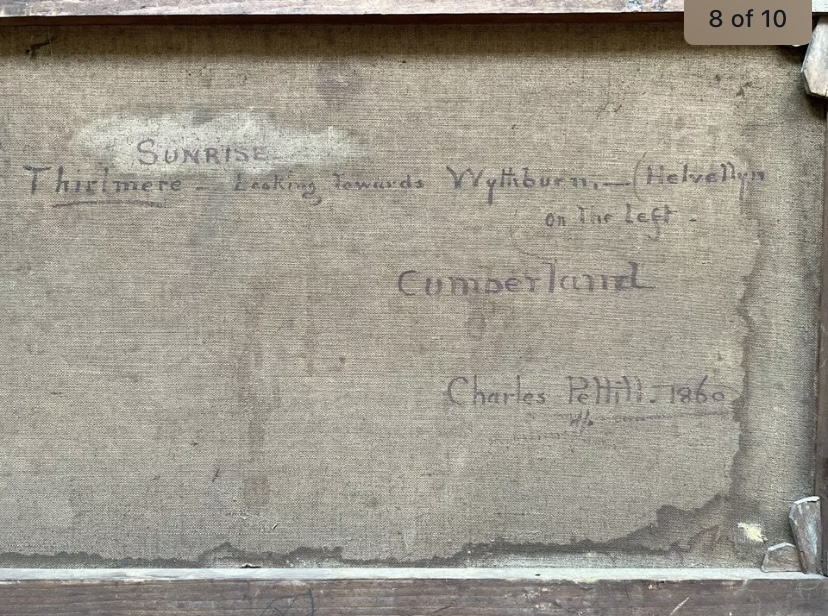 8 of 10
SUNRISE
Thirlmere - Looking Towards Wythburn. - (Helvellyn
on The Left -
Cumberland
Charles Pettitt. 1860